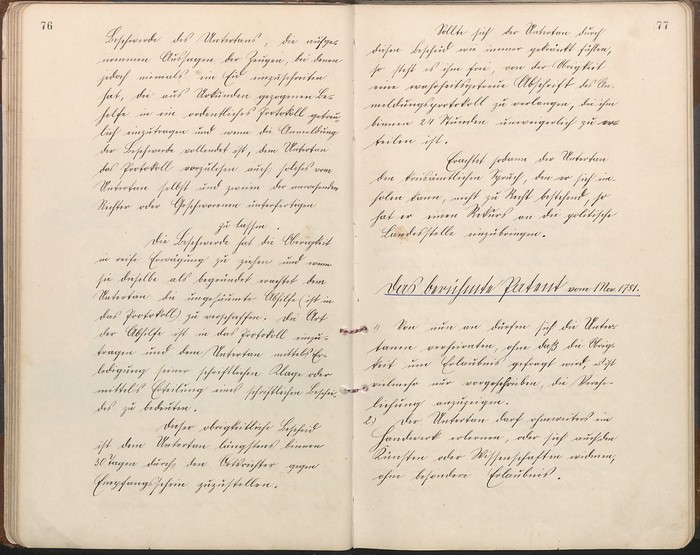 76
Beschwerde des Untertans, die aufge-
nommenen Aussagen der Zeugen, bei denen
jedoch niemals ein Eid einzuschreiten
hat, die aus Urkunden gezogenen Be-
helfe in ein ordentliches Protokoll getreu-
lich einzutragen und wenn die Anmeldung
der Beschwerde vollendet ist, dem Untertan
das Protokoll vorzulesen auch solches vom
Untertan selbst und zweien der anwesenden
Richter oder Geschworenen unterfertigen
zu lassen.
Die Beschwerde hat die Obrigkeit
in reife Erwägung zu ziehen und wenn
sie dieselbe als begründet erachtet dem
Untertan die ungesäumte Abhilfe (ist in
das Protokoll) zu verschaffen. Die Art
der Abhilfe ist in das Protokoll einzu-
tragen und dem Untertan mittels Er-
ledigung seiner schriftlichen Klage oder
mittels Erteilung eines schriftlichen Beschei-
des zu bedeuten.
Dieser obrigkeitliche Bescheid
ist dem Untertan längstens binnen
30 Tagen durch den Ortsrichter gegen
Empfangsschein zuzustellen.
77
Sollte sich der Untertan durch
diesen Bescheid wie immer gekränkt fühlen,
so steht es ihm frei, von der Obrigkeit
eine wahrheitsgetreue Abschrift des An-
meldungsprotokoll zu verlangen, die ihm
binnen 24 Stunden unweigerlich zu er-
teilen ist.
Erachtet sodann der Untertan
den kreisämtlichen Spruch, den er sich ein-
holen kann, nicht zu Recht bestehend, so
hat er einen Rekurs an die politische
Landesstelle einzubringen.
Das berühmte Patent vom 1 Nov. 1781.
1) Von nun an dürfen sich die Unter-
tanen verheiraten, ohne daß die Obrig-
keit um Erlaubnis gefragt wird, es ist
vielmehr nur vorgeschrieben, die Vereh-
lichung anzuzeigen.
2) Der Untertan darf ohneweiters ein
Handwerk erlernen, oder sich auch den
Künsten oder Wissenschaften widmen,
ohne besondere Erlaubnis.